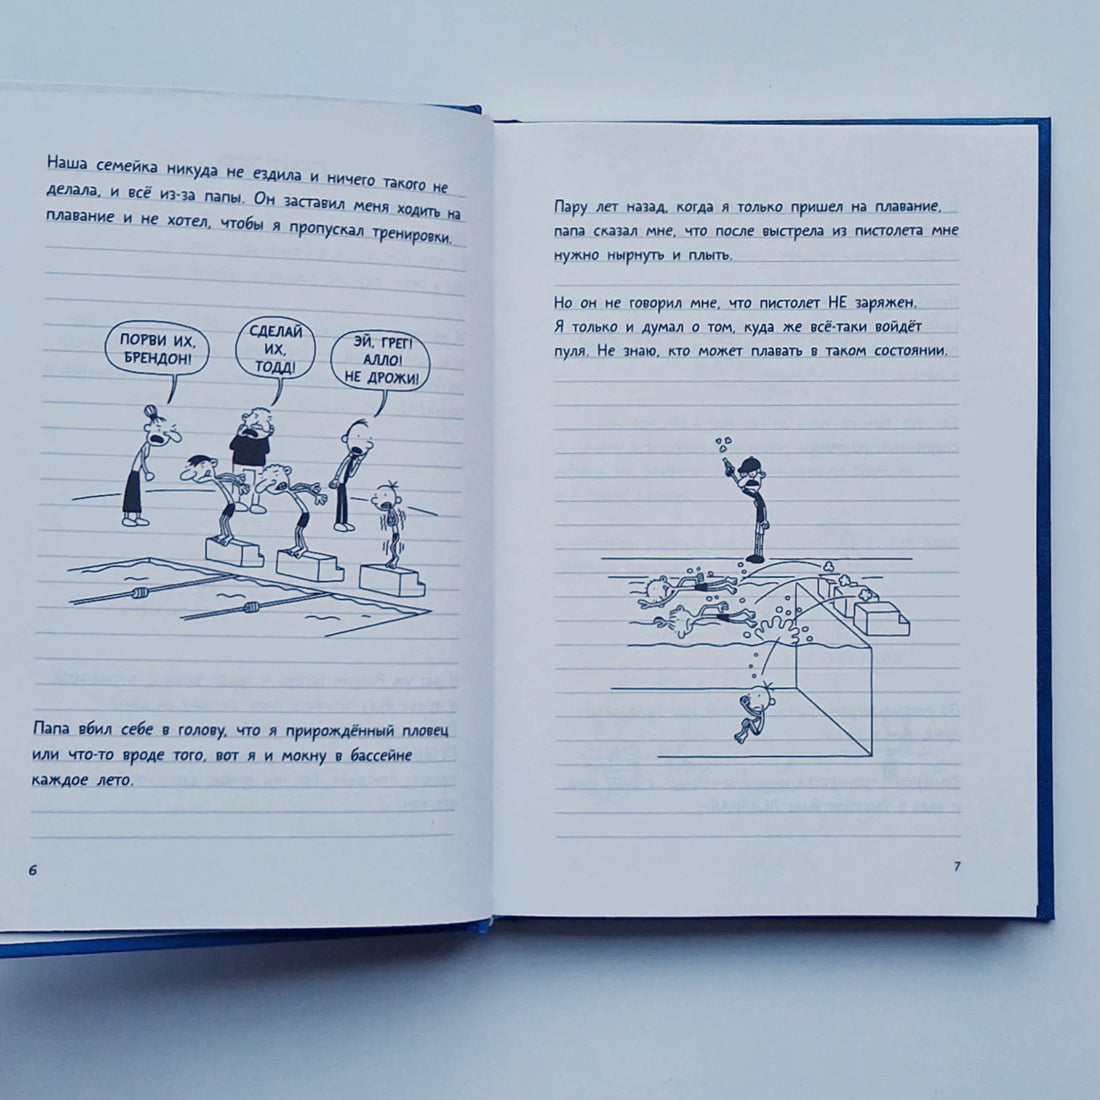 Наша семейка никуда не ездила и ничего такого не
делала, и всё из-за папы. Он заставил меня ходить на
плавание и не хотел, чтобы я пропускал тренировки.
ПОРВИ ИХ,
БРЕНДОН!
СДЕЛАЙ
ИХ,
ТОДД!
ЭЙ, ГРЕГ!
АЛЛО!
НЕ ДРОЖИ!
Папа вбил себе в голову, что я прирождённый пловец
или что-то вроде того, вот я и мокну в бассейне
каждое лето.
6
Пару лет назад, когда я только пришел на плавание,
папа сказал мне, что после выстрела из пистолета мне
нужно нырнуть и плыть.
Но он не говорил мне, что пистолет НЕ заряжен.
Я только и думал о том, куда же всё-таки войдёт
пуля. Не знаю, кто может плавать в таком состоянии.
7